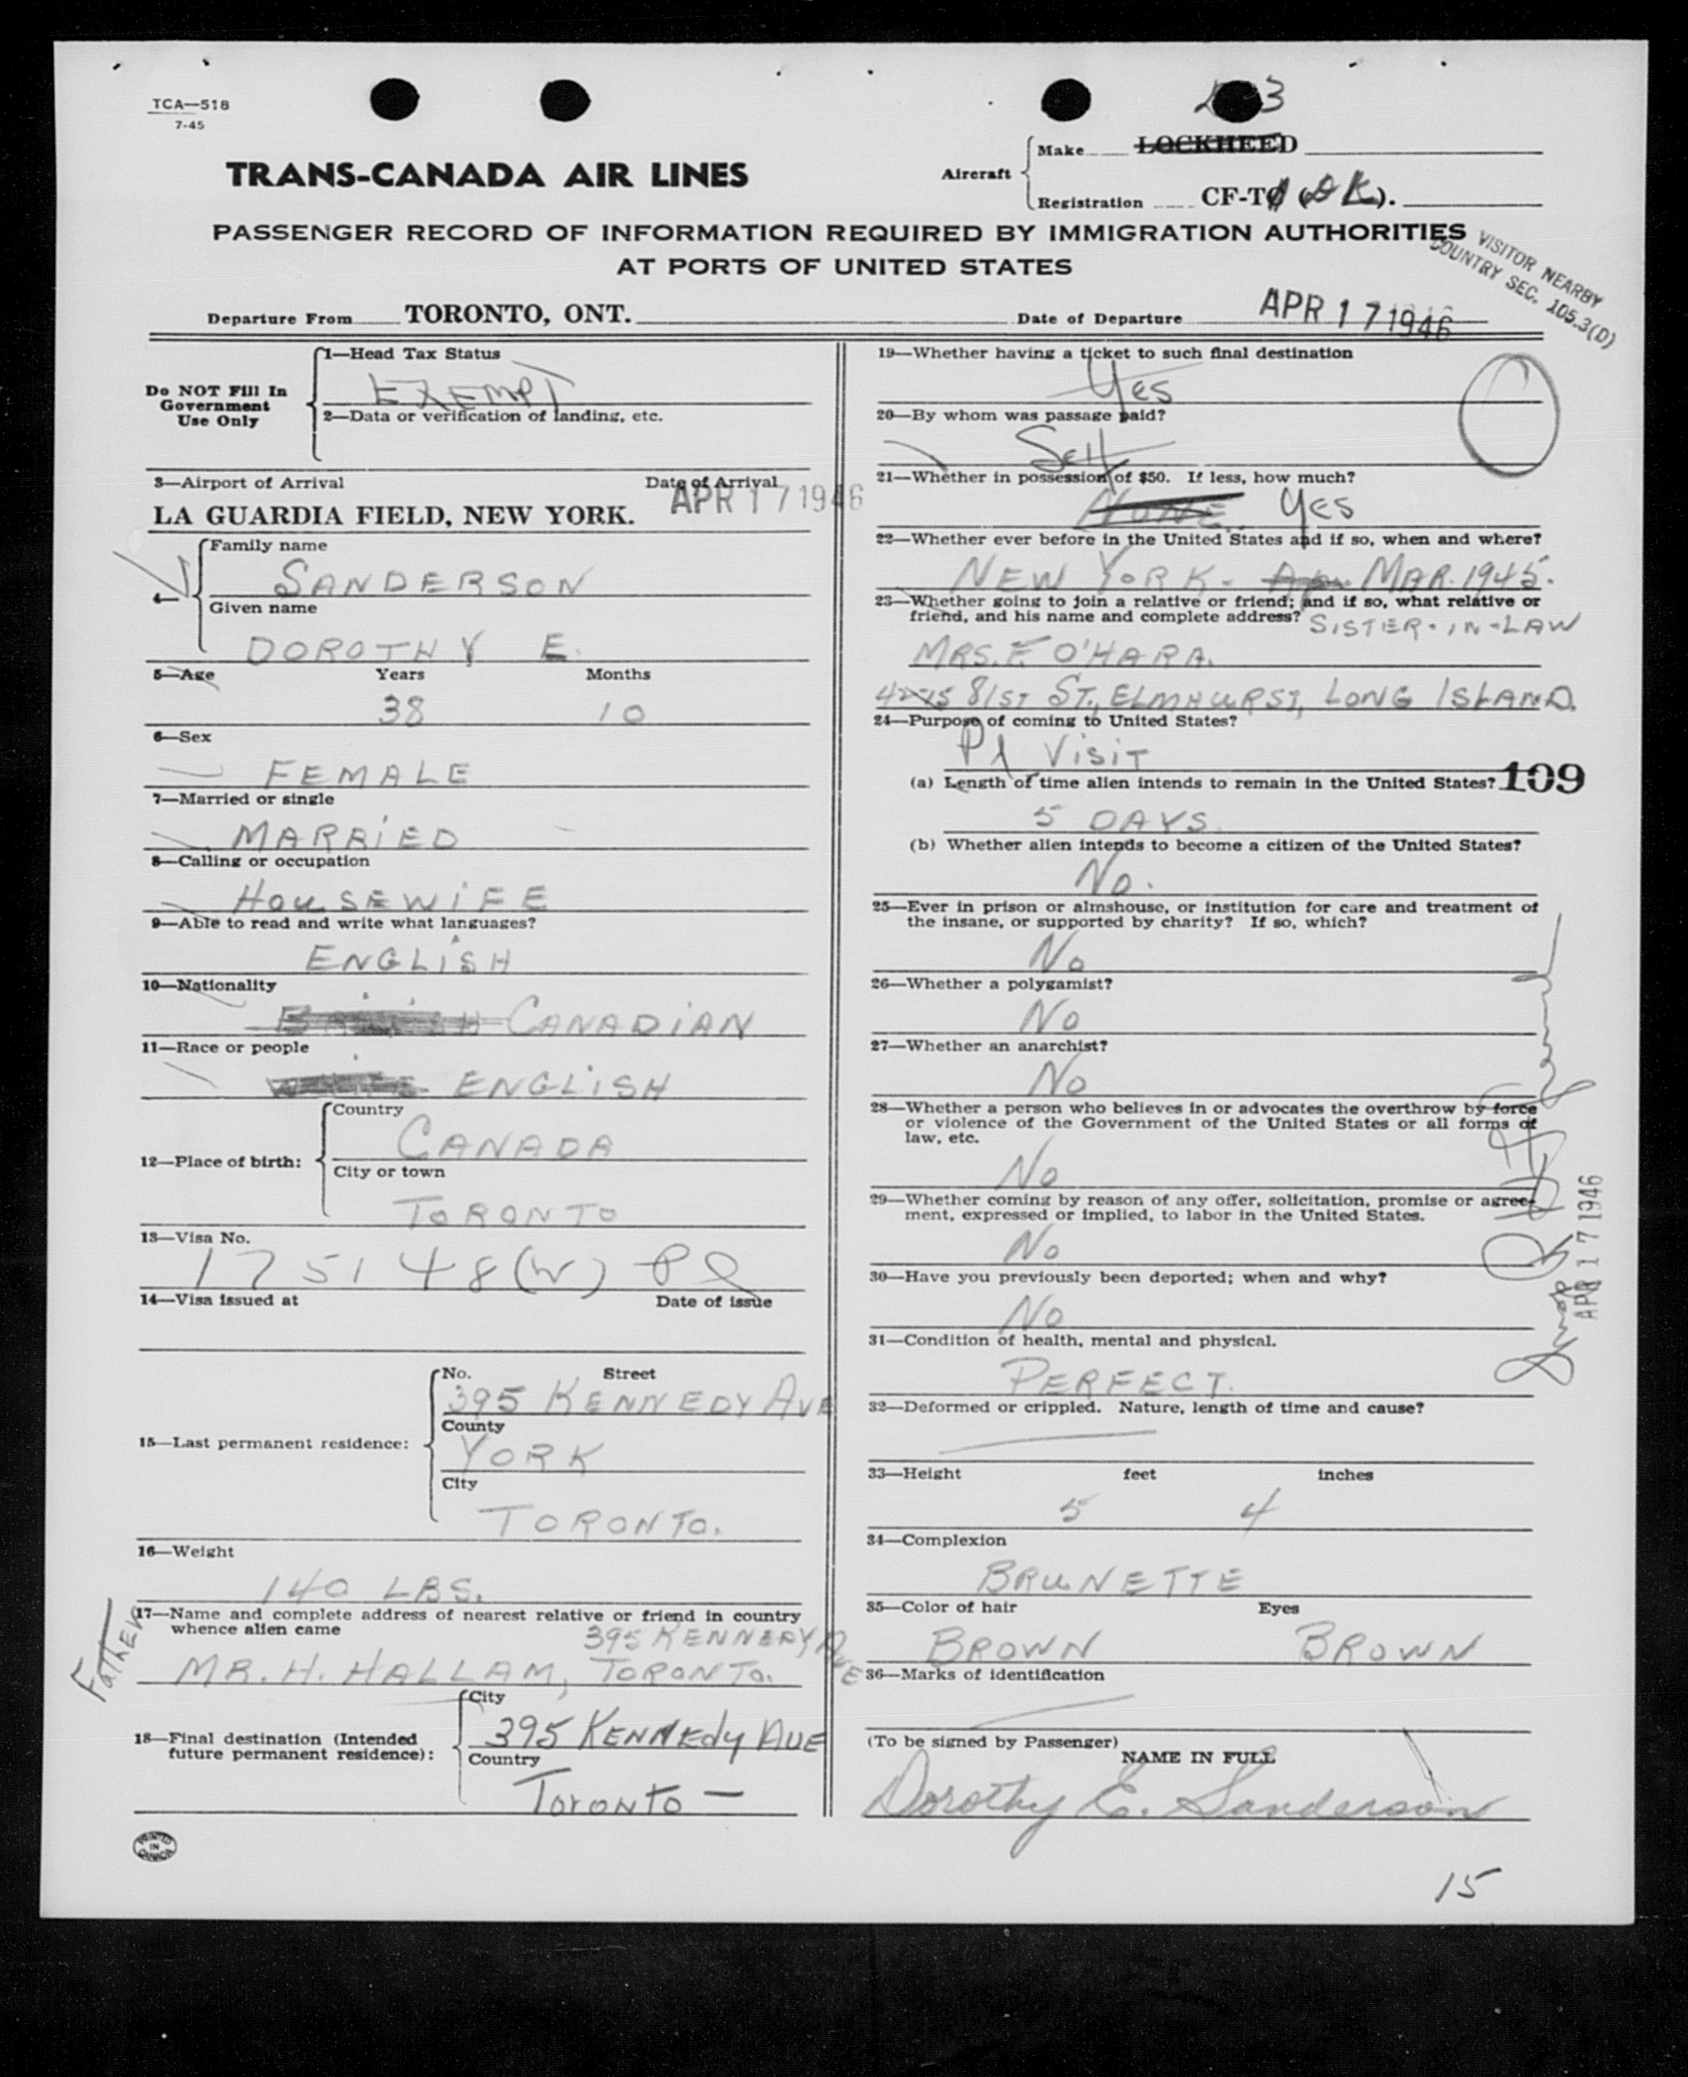 TCA—518
7-45
TRANS-CANADA AIR LINES
Aircraft
Make LOCKHEED
Registration CF-T (DK).
PASSENGER RECORD OF INFORMATION REQUIRED BY IMMIGRATION AUTHORITIES
AT PORTS OF UNITED STATES
VISITOR NEARBY
COUNTRY SEC. 105.3(D)
Departure From TORONTO, ONT. Date of Departure APR 17 1946
Do NOT Fill In
Government
Use Only
1—Head Tax Status
EXEMPT
2—Data or verification of landing, etc.
3—Airport of Arrival Date of Arrival
LA GUARDIA FIELD, NEW YORK. APR 17 1946
4—
Family name
SANDERSON
Given name
DOROTHY E.
5—Age Years Months
38 10
6—Sex
FEMALE
7—Married or single
MARRIED
8—Calling or occupation
HOUSEWIFE
9—Able to read and write what languages?
ENGLISH
10—Nationality
BRITISH CANADIAN
11—Race or people
ENGLISH
12—Place of birth:
Country
CANADA
City or town
TORONTO
13—Visa No.
175148(W) Pl
14—Visa issued at Date of issue
15—Last permanent residence:
No. Street
395 KENNEDY AVE
County
YORK
City
TORONTO.
16—Weight
140 LBS.
17—Name and complete address of nearest relative or friend in country
whence alien came
395 KENNEDY AVE
Father
MR. H. HALLAM, TORONTO.
18—Final destination (Intended
future permanent residence):
City
395 KENNEDY AVE
Country
TORONTO —
PRINTED
IN
CANADA
19—Whether having a ticket to such final destination
Yes
20—By whom was passage paid?
Self
21—Whether in possession of $50. If less, how much?
NONE Yes
22—Whether ever before in the United States and if so, when and where?
NEW YORK. MAR. 1945.
23—Whether going to join a relative or friend; and if so, what relative or
friend, and his name and complete address? SISTER-IN-LAW
MRS. F. O'HARA.
42-15 81ST ST., ELMHURST, LONG ISLAND.
24—Purpose of coming to United States?
Pl VISIT
(a) Length of time alien intends to remain in the United States? 109
5 DAYS.
(b) Whether alien intends to become a citizen of the United States?
No.
25—Ever in prison or almshouse, or institution for care and treatment of
the insane, or supported by charity? If so, which?
No
26—Whether a polygamist?
No
27—Whether an anarchist?
No
28—Whether a person who believes in or advocates the overthrow by force
or violence of the Government of the United States or all forms of
law, etc.
No
29—Whether coming by reason of any offer, solicitation, promise or agree-
ment, expressed or implied, to labor in the United States.
No
30—Have you previously been deported; when and why?
No
APR 17 1946
31—Condition of health, mental and physical.
PERFECT.
32—Deformed or crippled. Nature, length of time and cause?
33—Height feet inches
5 4
34—Complexion
BRUNETTE
35—Color of hair Eyes
BROWN BROWN
36—Marks of identification
(To be signed by Passenger)
NAME IN FULL
Dorothy E. Sanderson
15